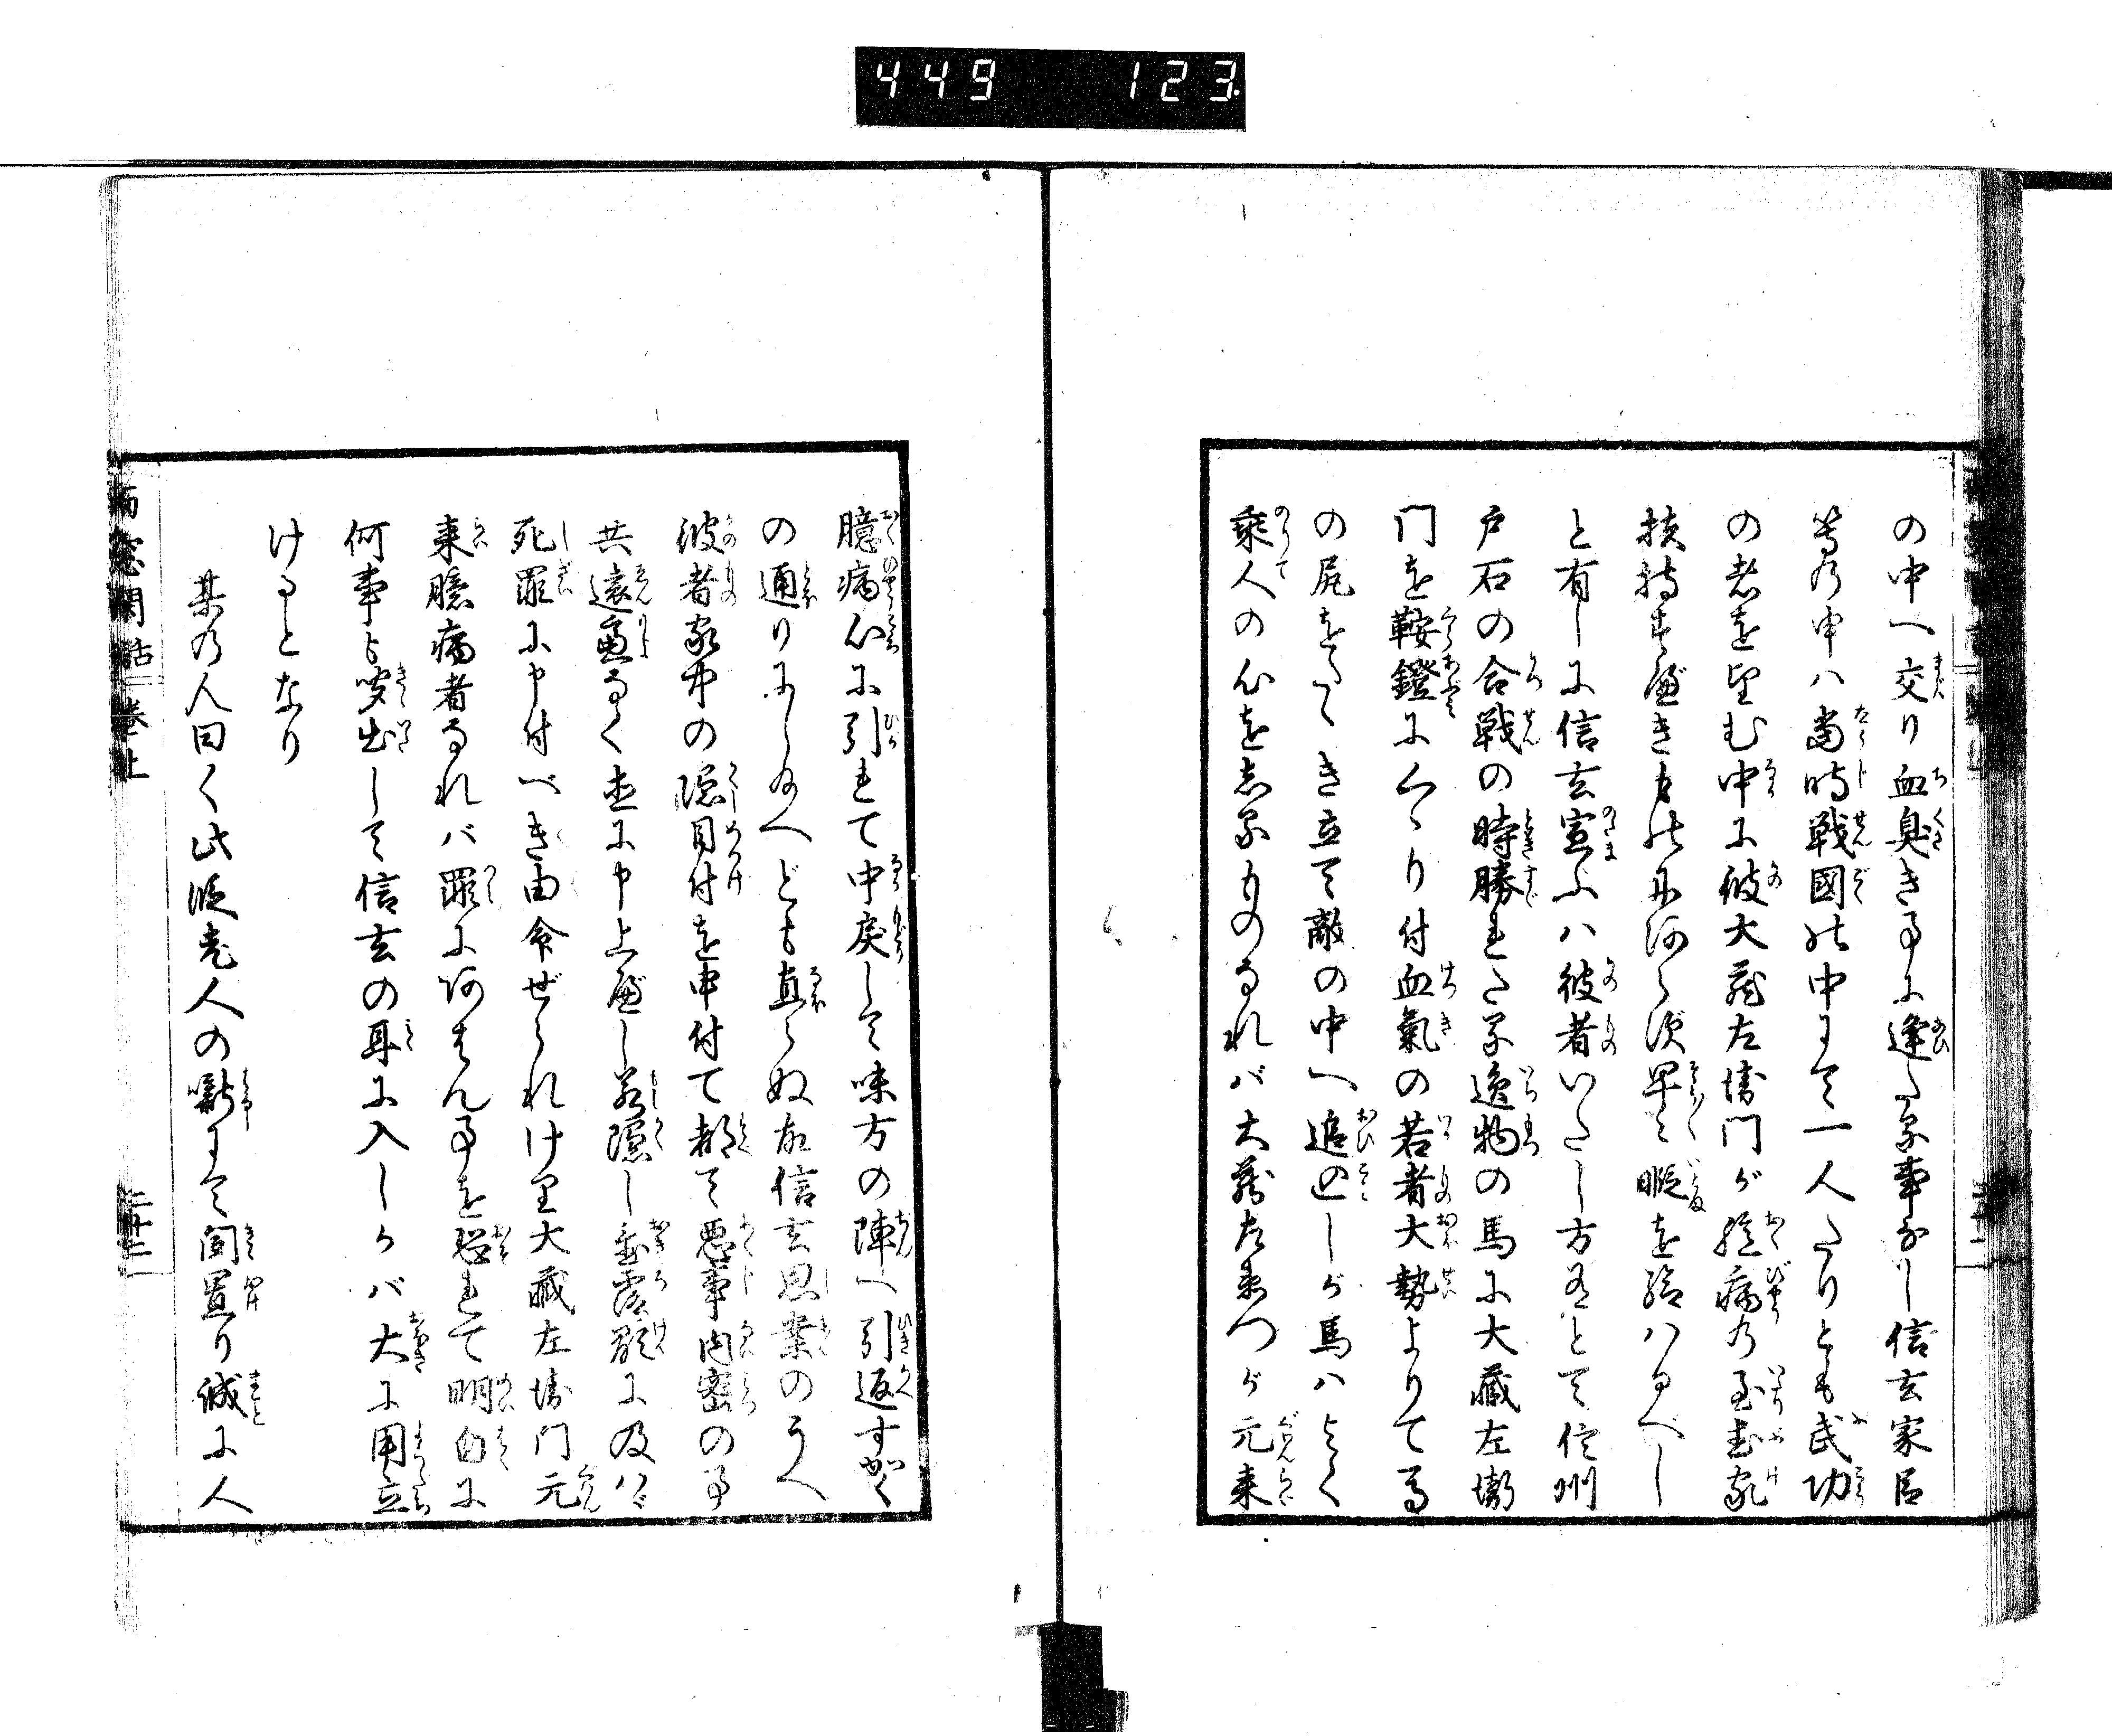 449 123.
の中へ交り血臭き事に逢たる事なし信玄家臣
等の申ハ當時戦國の中にて一人たりとも武功
の者を望む中に彼大蔵左衛門が臆病の至武家
扶持すべきものにあらず早々暇を給ハるべし
と有しに信玄宣ふハ彼者いたし方有とて信州
戸石の合戦の時勝れたる逸物の馬に大蔵左衛
門を鞍鐙にくゝり付血氣の若者大勢よりて馬
の尻をたゝき立て敵の中へ追込しが馬ハよく
乗人の心を志るものなれバ大蔵左衛門が元来
臆病心に引れて中戻して味方の陣へ引返すかく
の通りにし給へども直らぬ故信玄思案のうへ
彼者家中の隠目付を申付て都て悪事内密の事
共遠慮なく直に申上べし若隠し置露顕に及バゞ
死罪に申付べき由命ぜられけり大蔵左衛門元
来臆病者なれバ罪にあはん事を恐れて明白に
何事も聞出して信玄の耳に入しかバ大に用立
けるとなり
某の人曰く此段老人の噺にて聞置り誠に人
雨窓閑話 巻上 二十二